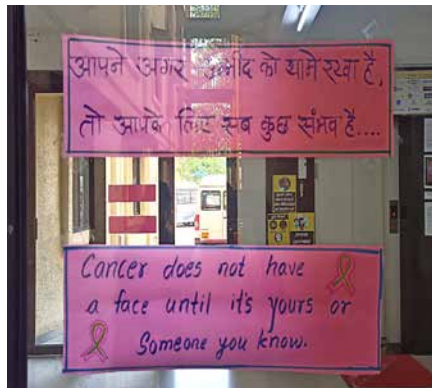 आपने अगर उम्मीद को थामे रखा है,
तो आपके लिए सब कुछ संभव है....
Cancer does not have
a face until it's yours or
Someone you know.